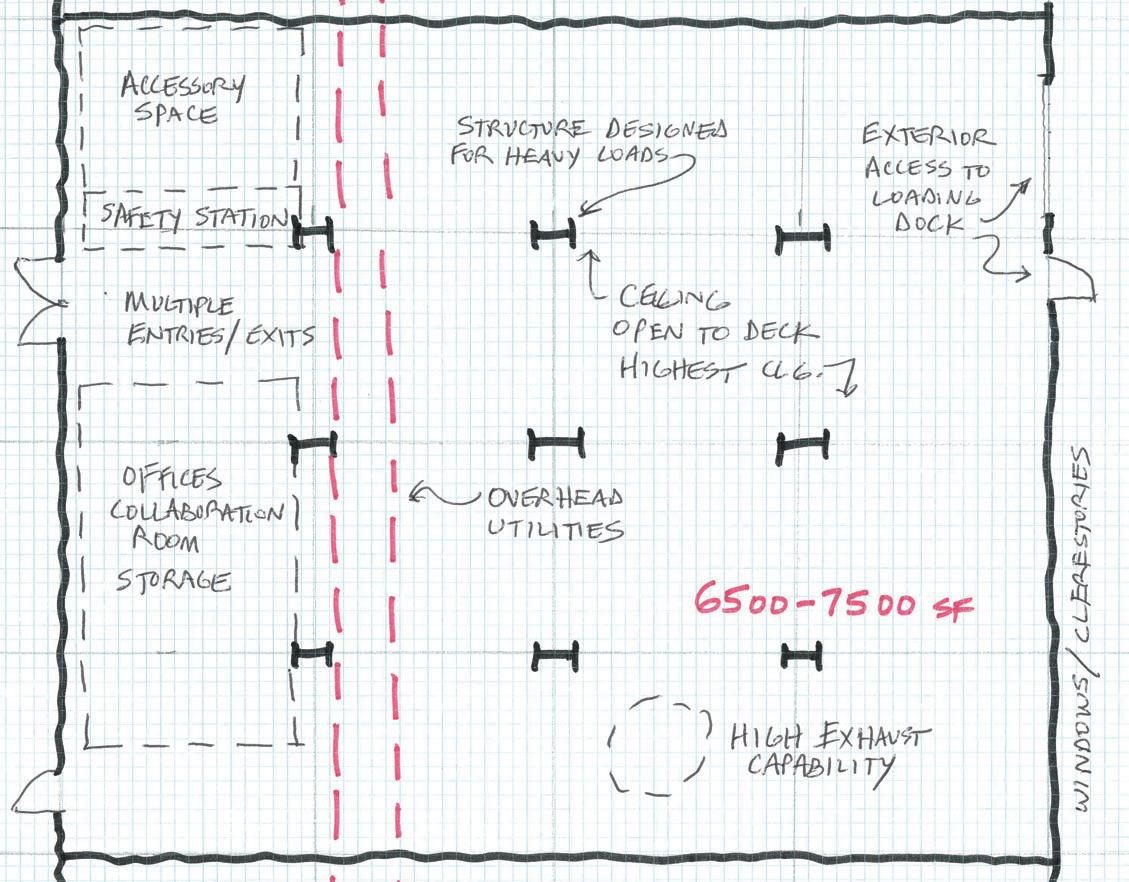 ACCESSORY
SPACE
SAFETY STATION
MULTIPLE
ENTRIES/EXITS
OFFICES
COLLABORATION
ROOM
STORAGE
STRUCTURE DESIGNED
FOR HEAVY LOADS
CEILING
OPEN TO DECK
HIGHEST CLG.
OVERHEAD
UTILITIES
EXTERIOR
ACCESS TO
LOADING
DOCK
6500-7500 SF
HIGH EXHAUST
CAPABILITY
WINDOWS/CLERESTORIES